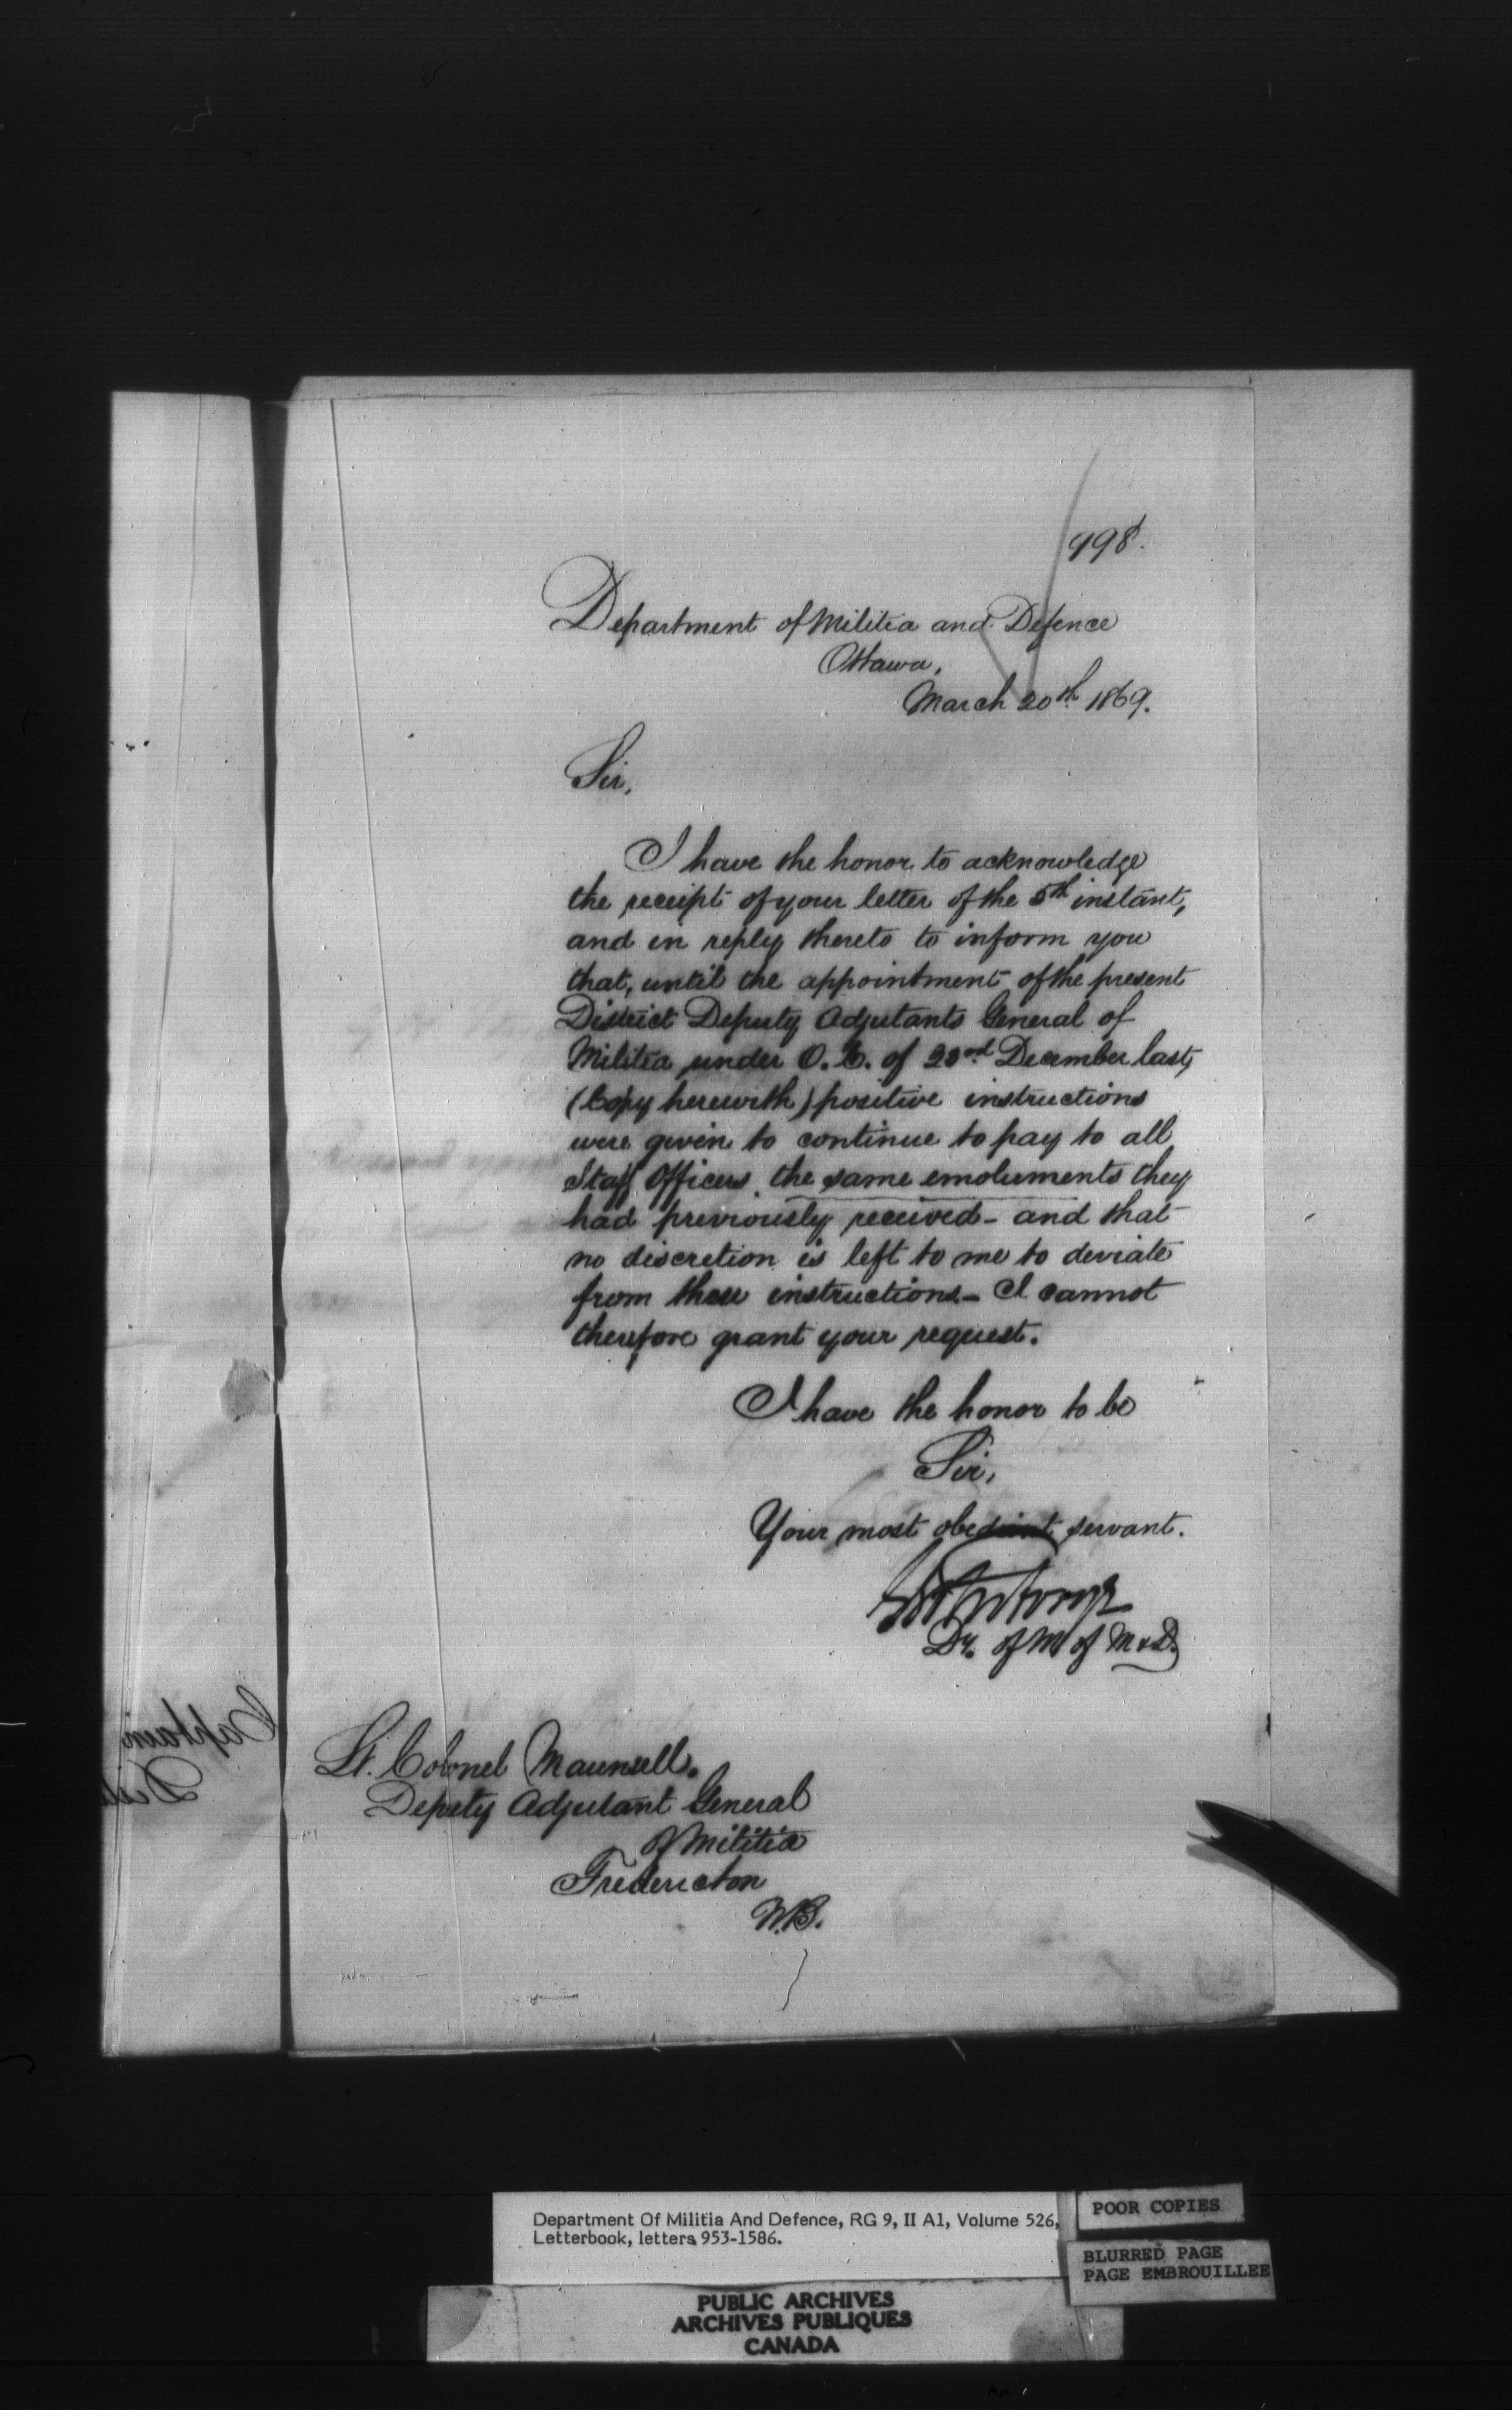 998.
Department of Militia and Defence
Ottawa,
March 20th 1869.
Sir,
I have the honor to acknowledge
the receipt of your letter of the 5th instant,
and in reply thereto to inform you
that, until the appointment of the present
District Deputy Adjutants General of
Militia under O.C. of 23rd December last,
(Copy herewith) positive instructions
were given to continue to pay to all
Staff Officers the same emoluments they
had previously received - and that
no discretion is left to me to deviate
from these instructions - I cannot
therefore grant your request.
I have the honor to be
Sir,
Your most obedient servant.
Dy. of M of M & D.
Lt. Colonel Maunsell.
Deputy Adjutant General
of Militia
Fredericton
N.B.
Captain
Department Of Militia And Defence, RG 9, II A1, Volume 526,
Letterbook, letters 953-1586.
POOR COPIES
BLURRED PAGE
PAGE EMBROUILLEE
PUBLIC ARCHIVES
ARCHIVES PUBLIQUES
CANADA